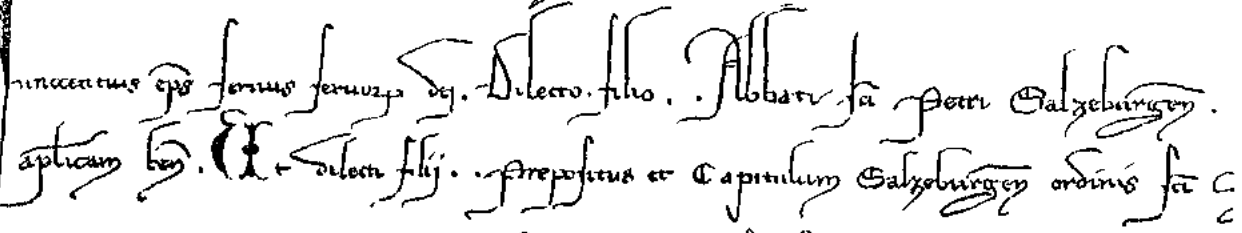 Innocentius eps seruus seruorum dei. Dilecto. filio. . Abbati sci Petri Salzeburgen.
aplicam ben. Ex dilecti filij. . Prepositus et Capitulum Salzeburgen ordinis sci